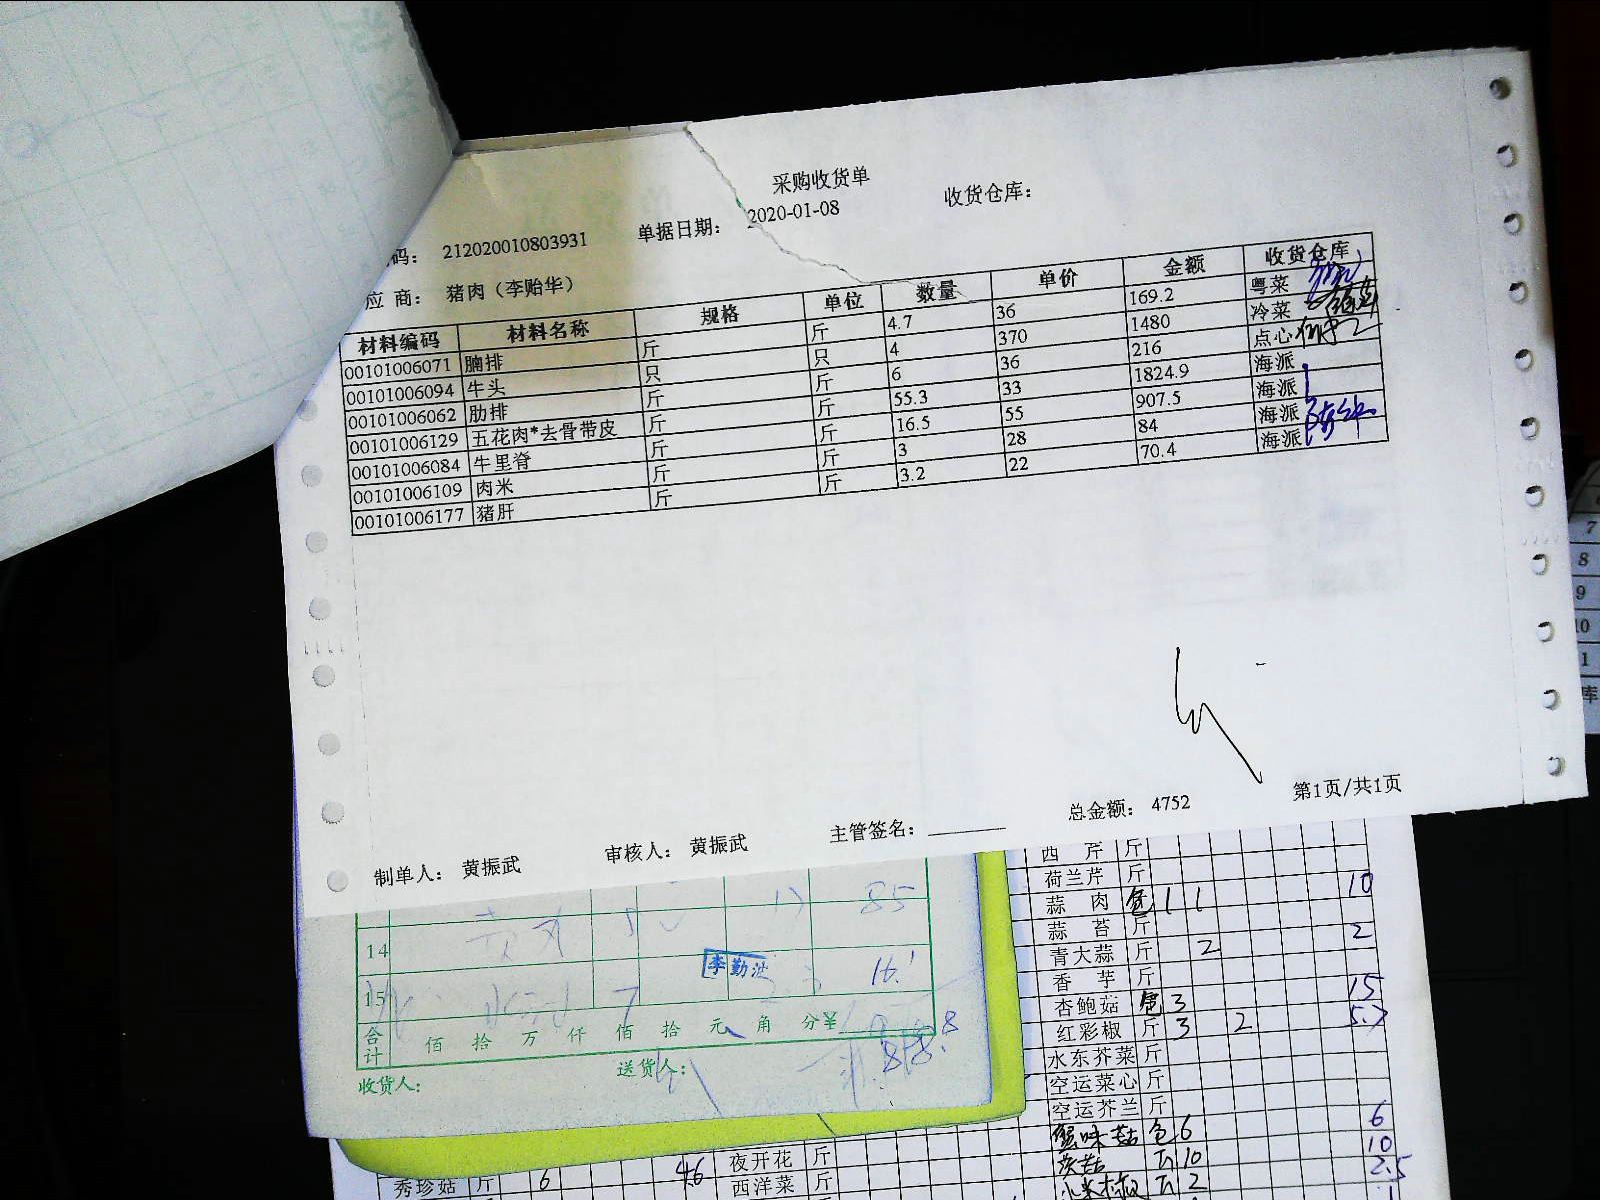 采购收货单
码： 212020010803931 单据日期： 2020-01-08 收货仓库：
应 商： 猪肉（李贻华）
材料编码 材料名称 规格 单位 数量 单价 金额 收货仓库
00101006071 腩排 斤 斤 4.7 36 169.2 粤菜
00101006094 牛头 只 只 4 370 1480 冷菜
00101006062 肋排 斤 斤 6 36 216 点心
00101006129 五花肉*去骨带皮 斤 斤 55.3 33 1824.9 海派
00101006084 牛里脊 斤 斤 16.5 55 907.5 海派
00101006109 肉米 斤 斤 3 28 84 海派
00101006177 猪肝 斤 斤 3.2 22 70.4 海派
制单人： 黄振武 审核人： 黄振武 主管签名： 总金额： 4752 第1页/共1页
85
14
李勤
15 7 16.1
合计 佰 拾 万 仟 佰 拾 元 角 分¥
收货人： 送货人：
西 芹 斤
荷兰芹 斤
蒜 肉 包 1 1 10
蒜 苔 斤
青大蒜 斤 2 2
香 芋 斤
杏鲍菇 包 3 15
红彩椒 斤 3 2 5.7
水东芥菜 斤
空运菜心 斤
空运芥兰 斤
蟹味菇 包 6 6
10 10
2 2.5
夜开花 斤
秀珍菇 斤 6 4.6 西洋菜 斤
7
8
9
10
1
库